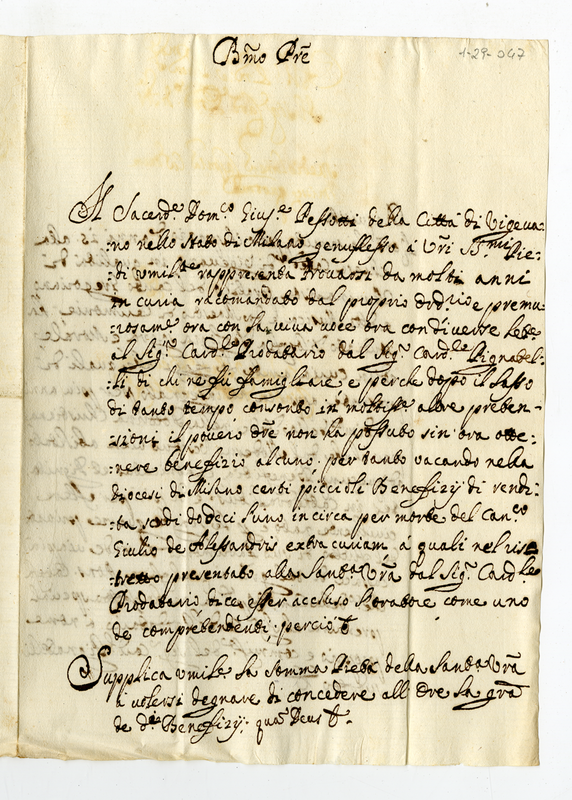 B̃mo Prẽ
1-29-047
Il Sacerde. Domco. Giuse. Pessotti della Città di Vigeva:
:no nello Stato di Milano genuflesso à Vr̃i Bmi. Pie:
:di umilte. rappresenta trovarsi da molti anni
in curia racomandato dal proprio Ordrio. e premu:
:rosame. ora con la viva voce ora con diverse lete.
al Sigr. Cardle. Prodatario dal Sigr. Cardle. Pignatel:
:li di chi ne fù famigliare e perche dopo il lasso
di tanto tempo consonto in moltisse. altre preten-
:sioni il povero Ore. non hà possuto sin ora otte:
:nere benefizio alcuno; per tanto vacando nella
Diocesi di Milano certi piccioli Benefizij di rendi:
:ta scudi dodeci l'uno in circa per morte del Canco.
Giulio de Alessandris extra curiam à quali nel ris
:tretto presentato alla Santà Vr̃a dal Sigr. Cardle.
Prodatario dice esser accluso l'Oratore come uno
de compretendenti; perciò
Supplica umile. la somma Pietà della Santà Vr̃a
à volersi degnare di concedere all' Ore. la gr̃a
de di. Benefizij; quã Deus